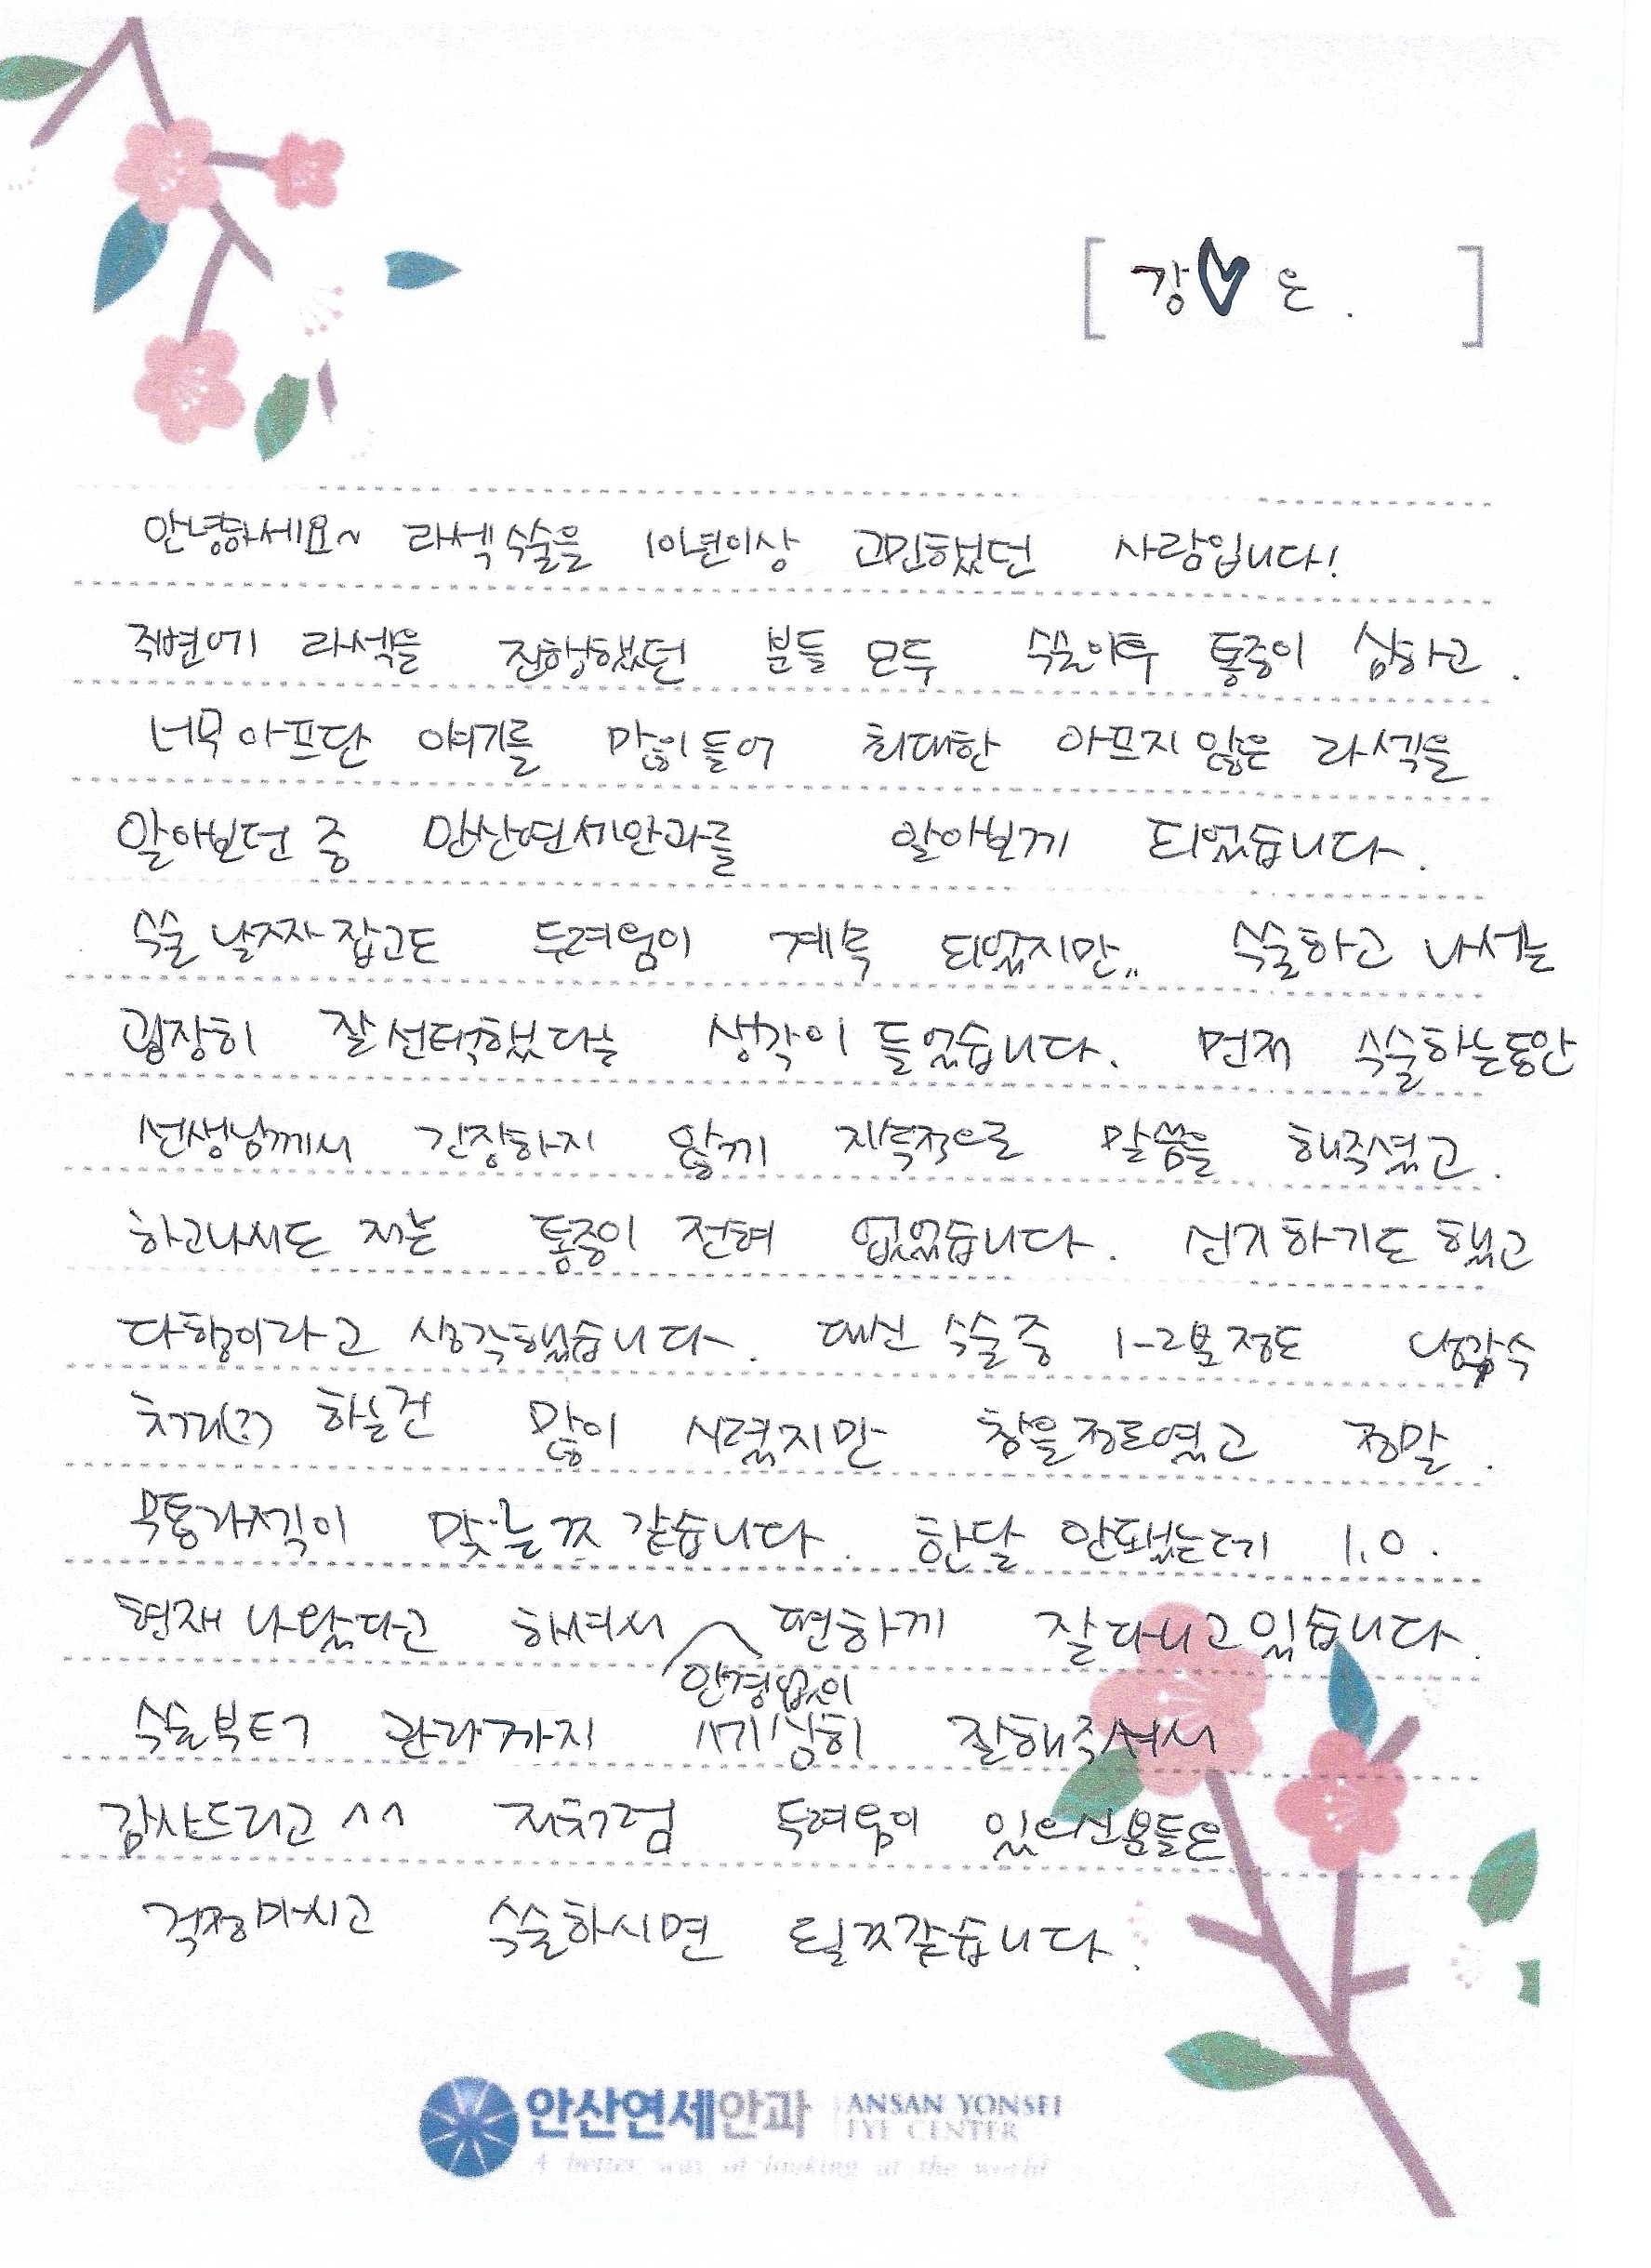 [ 강♥은. ]
안녕하세요~ 라섹수술을 10년이상 고민했었던 사람입니다!
주변에 라섹을 진행했던 분들 모두 수술이후 통증이 심하고.
너무 아프단 얘기를 많이 들어 최대한 아프지 않은 라섹을
알아보던 중 안산연세안과를 알아보게 되었습니다.
수술 날짜 잡고도 두려움이 계속 되었지만.. 수술하고 나서는
굉장히 잘 선택했다는 생각이 들었습니다. 먼저 수술하는동안
선생님께서 긴장하지 않게 지속적으로 말씀을 해주셨고.
하고나서도 저는 통증이 전혀 없었습니다. 신기하기도 했고
다행이라고 생각했습니다. 대신 수술중 1-2분 정도 냉각수
처리(?) 하는건 많이 시렸지만 참을정도였고 정말.
무통라섹이 맞는것 같습니다. 한달 안됐는데 1.0.
현재 나왔다고 하셔서 편하게 잘다니고있습니다.
안경없이
수술부터 관리까지 세심히 잘해주셔서
감사드리고^^ 저처럼 두려움이 있으신분들은
걱정마시고 수술하시면 될것같습니다.
안산연세안과 ANSAN YONSEI
EYE CENTER
A better way of looking at the world